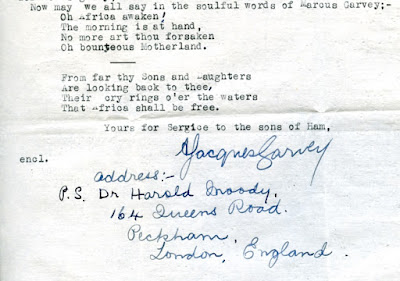 Now may we all say in the soulful words of Marcus Garvey;-
Oh Africa awaken!
The morning is at hand,
No more art thou forsaken
Oh bounteous Motherland.
From far thy Sons and Daughters
Are looking back to thee,
Their cry rings o'er the waters
That Africa shall be free.
Yours for Service to the sons of Ham,
AJacquesGarvey
encl.
address:-
P.S. Dr Harold Moody,
164 Queens Road.
Peckham,
London, England.